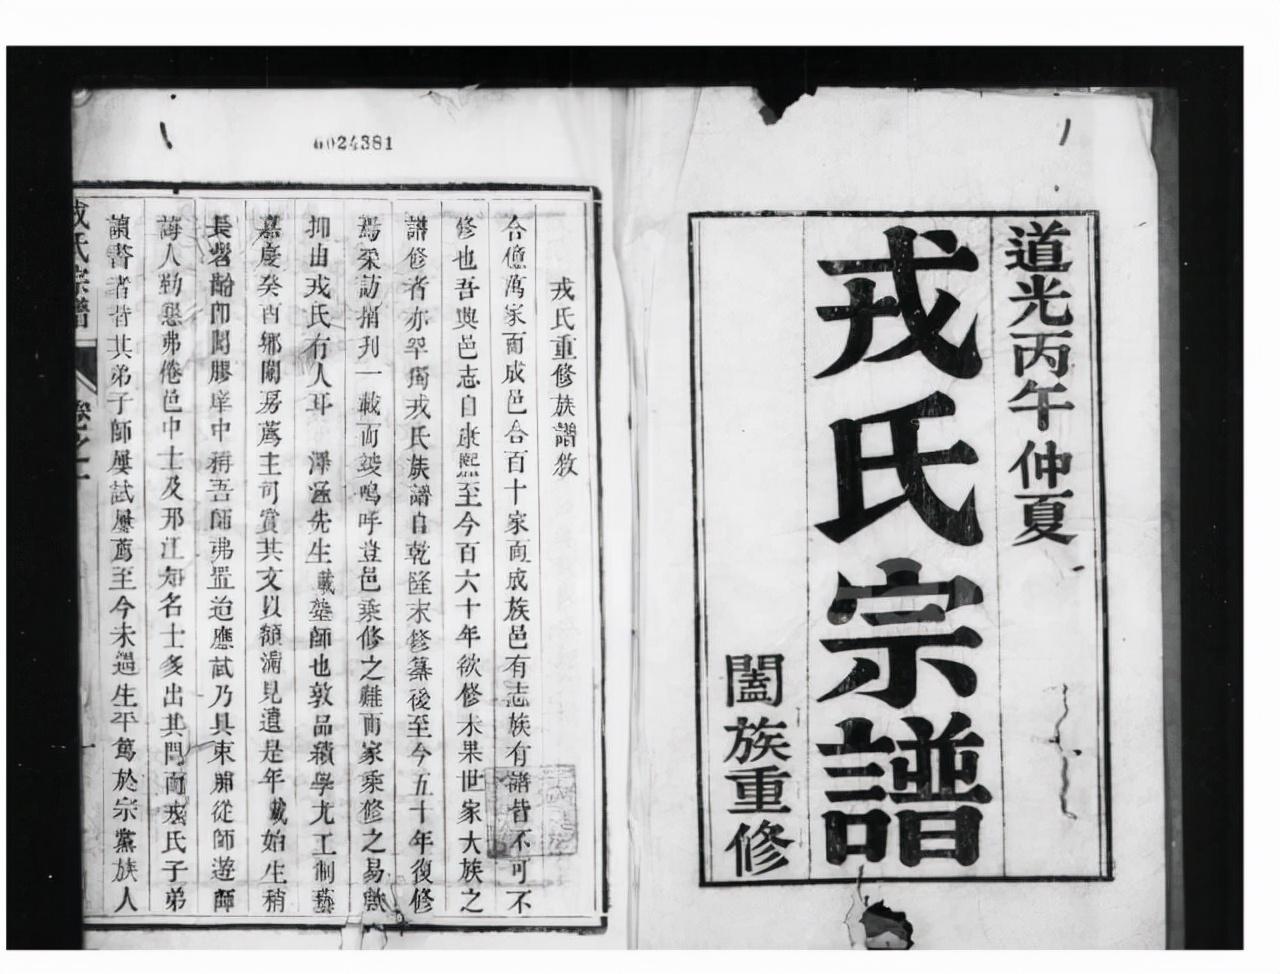 道光丙午仲夏
戎氏宗譜
闔族重修
6024381
戎氏重修族譜敘
合億萬家而成邑合百十家而成族邑有志族有譜皆不可不
修也吾與邑志自康熙至今百六十年欲修未果世家大族之
譜修者亦罕獨戎氏族譜自乾隆末修纂後至今五十年復修
焉采訪捐刋一載而竣嗚呼豈邑乘修之難而家乘修之易歟
抑由戎氏有人耳澤涵先生載塾師也敦品績學尤工制藝
嘉慶癸酉鄉闈房薦主司賞其文以額滿見遺是年載始生稍
長髫齡卽聞膠庠中稱吾師弗置迨應試乃具束脯從師遊師
誨人勤懇弗倦邑中士及邗江知名士多出其門而戎氏子弟
讀書者皆其弟子師屢試屢薦至今未遇生平篤於宗黨族人
戎氏宗譜
卷之一
一